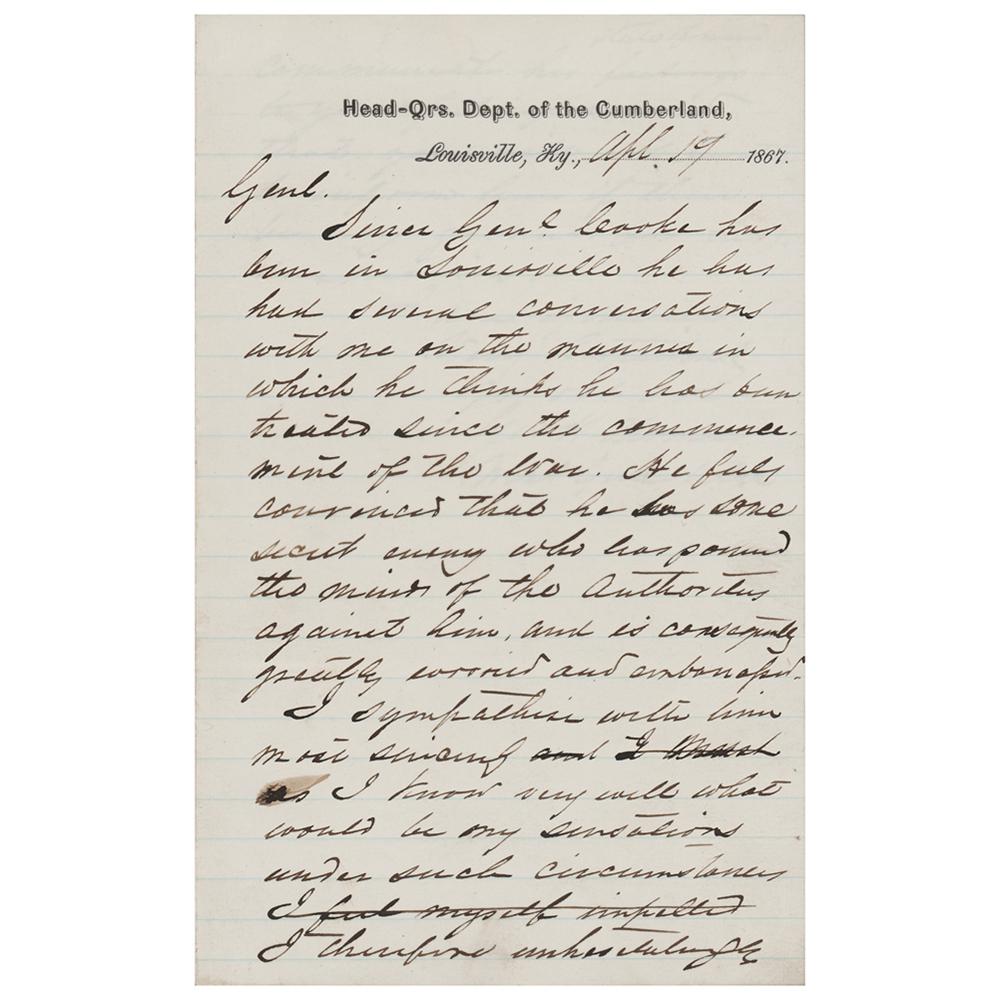 Head-Qrs. Dept. of the Cumberland,
Louisville, Ky., Apl. 19 1867.
Genl.
Since Genl Cooke has
been in Louisville he has
had several conversations
with me on the manner in
which he thinks he has been
treated since the commence-
ment of the War. He feels
convinced that he has some
secret enemy who has poisoned
the minds of the Authorities
against him, and is consequently
greatly worried and embarrassed.
I sympathise with him
most sincerely and I
as I know very well what
would be my sensations
under such circumstances
I feel myself impelled
I therefore unhesitatingly